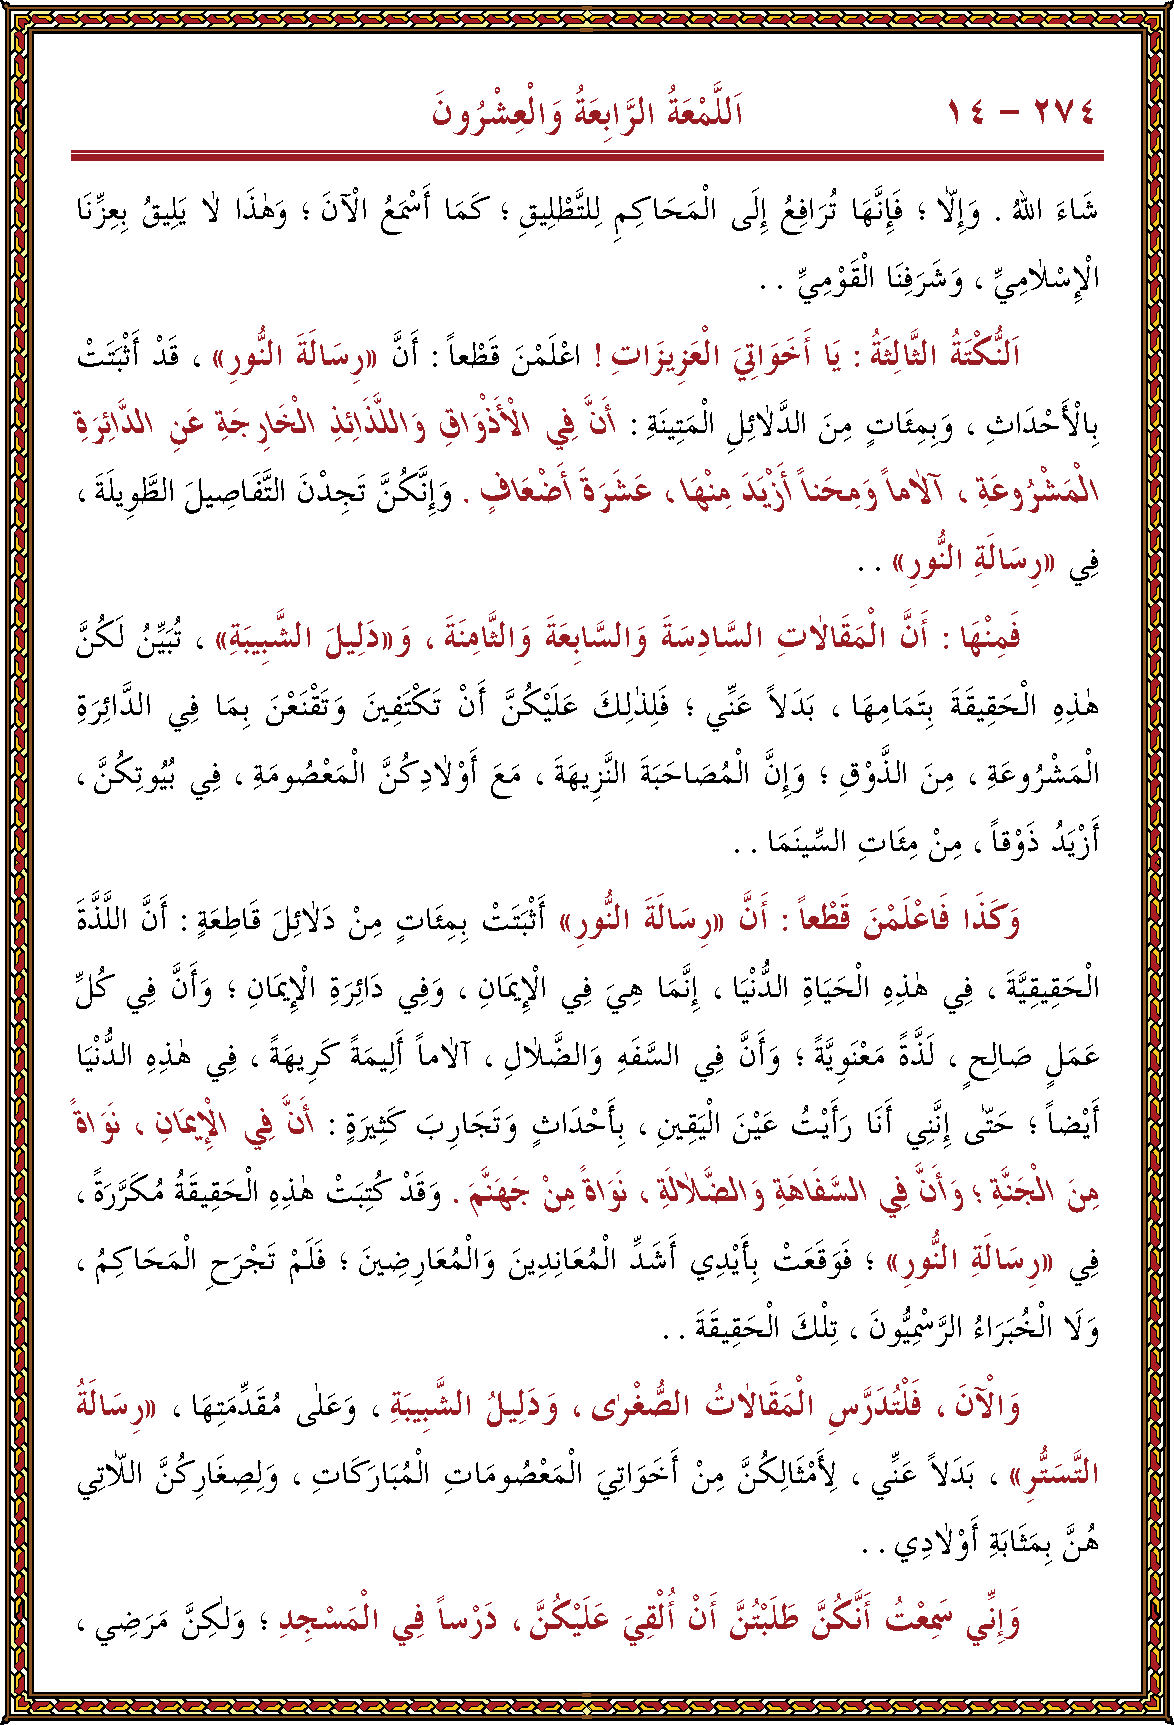 ٢٧٤ – ١٤ اَللَّمْعَةُ الرَّابِعَةُ وَالْعِشْرُونَ
شَاءَ اللهُ . وَإِلّاَ ؛ فَإِنَّهَا تُرَافِعُ إِلَى الْمَحَاكِمِ لِلتَّطْلِيقِ ؛ كَمَا أَسْمَعُ الْآنَ ؛ وَهٰذَا لاٰ يَلِيقُ بِعِزِّنَا
الْإِسْلاٰمِيِّ ، وَشَرَفِنَا الْقَوْمِيِّ . .
اَلنُّكْتَةُ الثَّالِثَةُ : يَا أَخَوَاتِيَ الْعَزِيزَاتِ ! اعْلَمْنَ قَطْعاً : أَنَّ «رِسَالَةَ النُّورِ» ، قَدْ أَثْبَتَتْ
بِالْأَحْدَاثِ ، وَبِمِئَاتٍ مِنَ الدَّلاٰئِلِ الْمَتِينَةِ : أَنَّ فِي الْأَذْوَاقِ وَاللَّذَائِذِ الْخَارِجَةِ عَنِ الدَّائِرَةِ
الْمَشْرُوعَةِ ، آلاٰماً وَمِحَناً أَزْيَدَ مِنْهَا ، عَشَرَةَ أَضْعَافٍ . وَإِنَّكُنَّ تَجِدْنَ التَّفَاصِيلَ الطَّوِيلَةَ ،
فِي «رِسَالَةِ النُّورِ» . .
فَمِنْهَا : أَنَّ الْمَقَالاٰتِ السَّادِسَةَ وَالسَّابِعَةَ وَالثَّامِنَةَ ، وَ«دَلِيلَ الشَّبِيبَةِ» ، تُبَيِّنُ لَكُنَّ
هٰذِهِ الْحَقِيقَةَ بِتَمَامِهَا ، بَدَلاً عَنِّي ؛ فَلِذٰلِكَ عَلَيْكُنَّ أَنْ تَكْتَفِينَ وَتَقْنَعْنَ بِمَا فِي الدَّائِرَةِ
الْمَشْرُوعَةِ ، مِنَ الذَّوْقِ ؛ وَإِنَّ الْمُصَاحَبَةَ النَّزِيهَةَ ، مَعَ أَوْلاٰدِكُنَّ الْمَعْصُومَةِ ، فِي بُيُوتِكُنَّ ،
أَزْيَدُ ذَوْقاً ، مِنْ مِئَاتِ السِّينَمَا . .
وَكَذَا فَاعْلَمْنَ قَطْعاً : أَنَّ «رِسَالَةَ النُّورِ» أَثْبَتَتْ بِمِئَاتٍ مِنْ دَلاٰئِلَ قَاطِعَةٍ : أَنَّ اللَّذَّةَ
الْحَقِيقِيَّةَ ، فِي هٰذِهِ الْحَيَاةِ الدُّنْيَا ، إِنَّمَا هِيَ فِي الْإِيمَانِ ، وَفِي دَائِرَةِ الْإِيمَانِ ؛ وَأَنَّ فِي كُلِّ
عَمَلٍ صَالِحٍ ، لَذَّةً مَعْنَوِيَّةً ؛ وَأَنَّ فِي السَّفَهِ وَالضَّلاٰلِ ، آلاٰماً أَلِيمَةً كَرِيهَةً ، فِي هٰذِهِ الدُّنْيَا
أَيْضاً ؛ حَتّٰى إِنَّنِي أَنَا رَأَيْتُ عَيْنَ الْيَقِينِ ، بِأَحْدَاثٍ وَتَجَارِبَ كَثِيرَةٍ : أَنَّ فِي الْإِيمَانِ ، نَوَاةً
مِنَ الْجَنَّةِ ؛ وَأَنَّ فِي السَّفَاهَةِ وَالضَّلاٰلَةِ ، نَوَاةً مِنْ جَهَنَّمَ . وَقَدْ كُتِبَتْ هٰذِهِ الْحَقِيقَةُ مُكَرَّرَةً ،
فِي «رِسَالَةِ النُّورِ» ؛ فَوَقَعَتْ بِأَيْدِي أَشَدِّ الْمُعَانِدِينَ وَالْمُعَارِضِينَ ؛ فَلَمْ تَجْرَحِ الْمَحَاكِمُ ،
وَلَا الْخُبَرَاءُ الرَّسْمِيُّونَ ، تِلْكَ الْحَقِيقَةَ . .
وَالْآنَ ، فَلْتُدَرَّسِ الْمَقَالاٰتُ الصُّغْرٰى ، وَدَلِيلُ الشَّبِيبَةِ ، وَعَلٰى مُقَدِّمَتِهَا ، «رِسَالَةُ
التَّسَتُّرِ» ، بَدَلاً عَنِّي ، لِأَمْثَالِكُنَّ مِنْ أَخَوَاتِيَ الْمَعْصُومَاتِ الْمُبَارَكَاتِ ، وَلِصِغَارِكُنَّ اللّاٰتِي
هُنَّ بِمَثَابَةِ أَوْلاٰدِي . .
وَإِنِّي سَمِعْتُ أَنَّكُنَّ طَلَبْتُنَّ أَنْ أُلْقِيَ عَلَيْكُنَّ ، دَرْساً فِي الْمَسْجِدِ ؛ وَلٰكِنَّ مَرَضِي ،